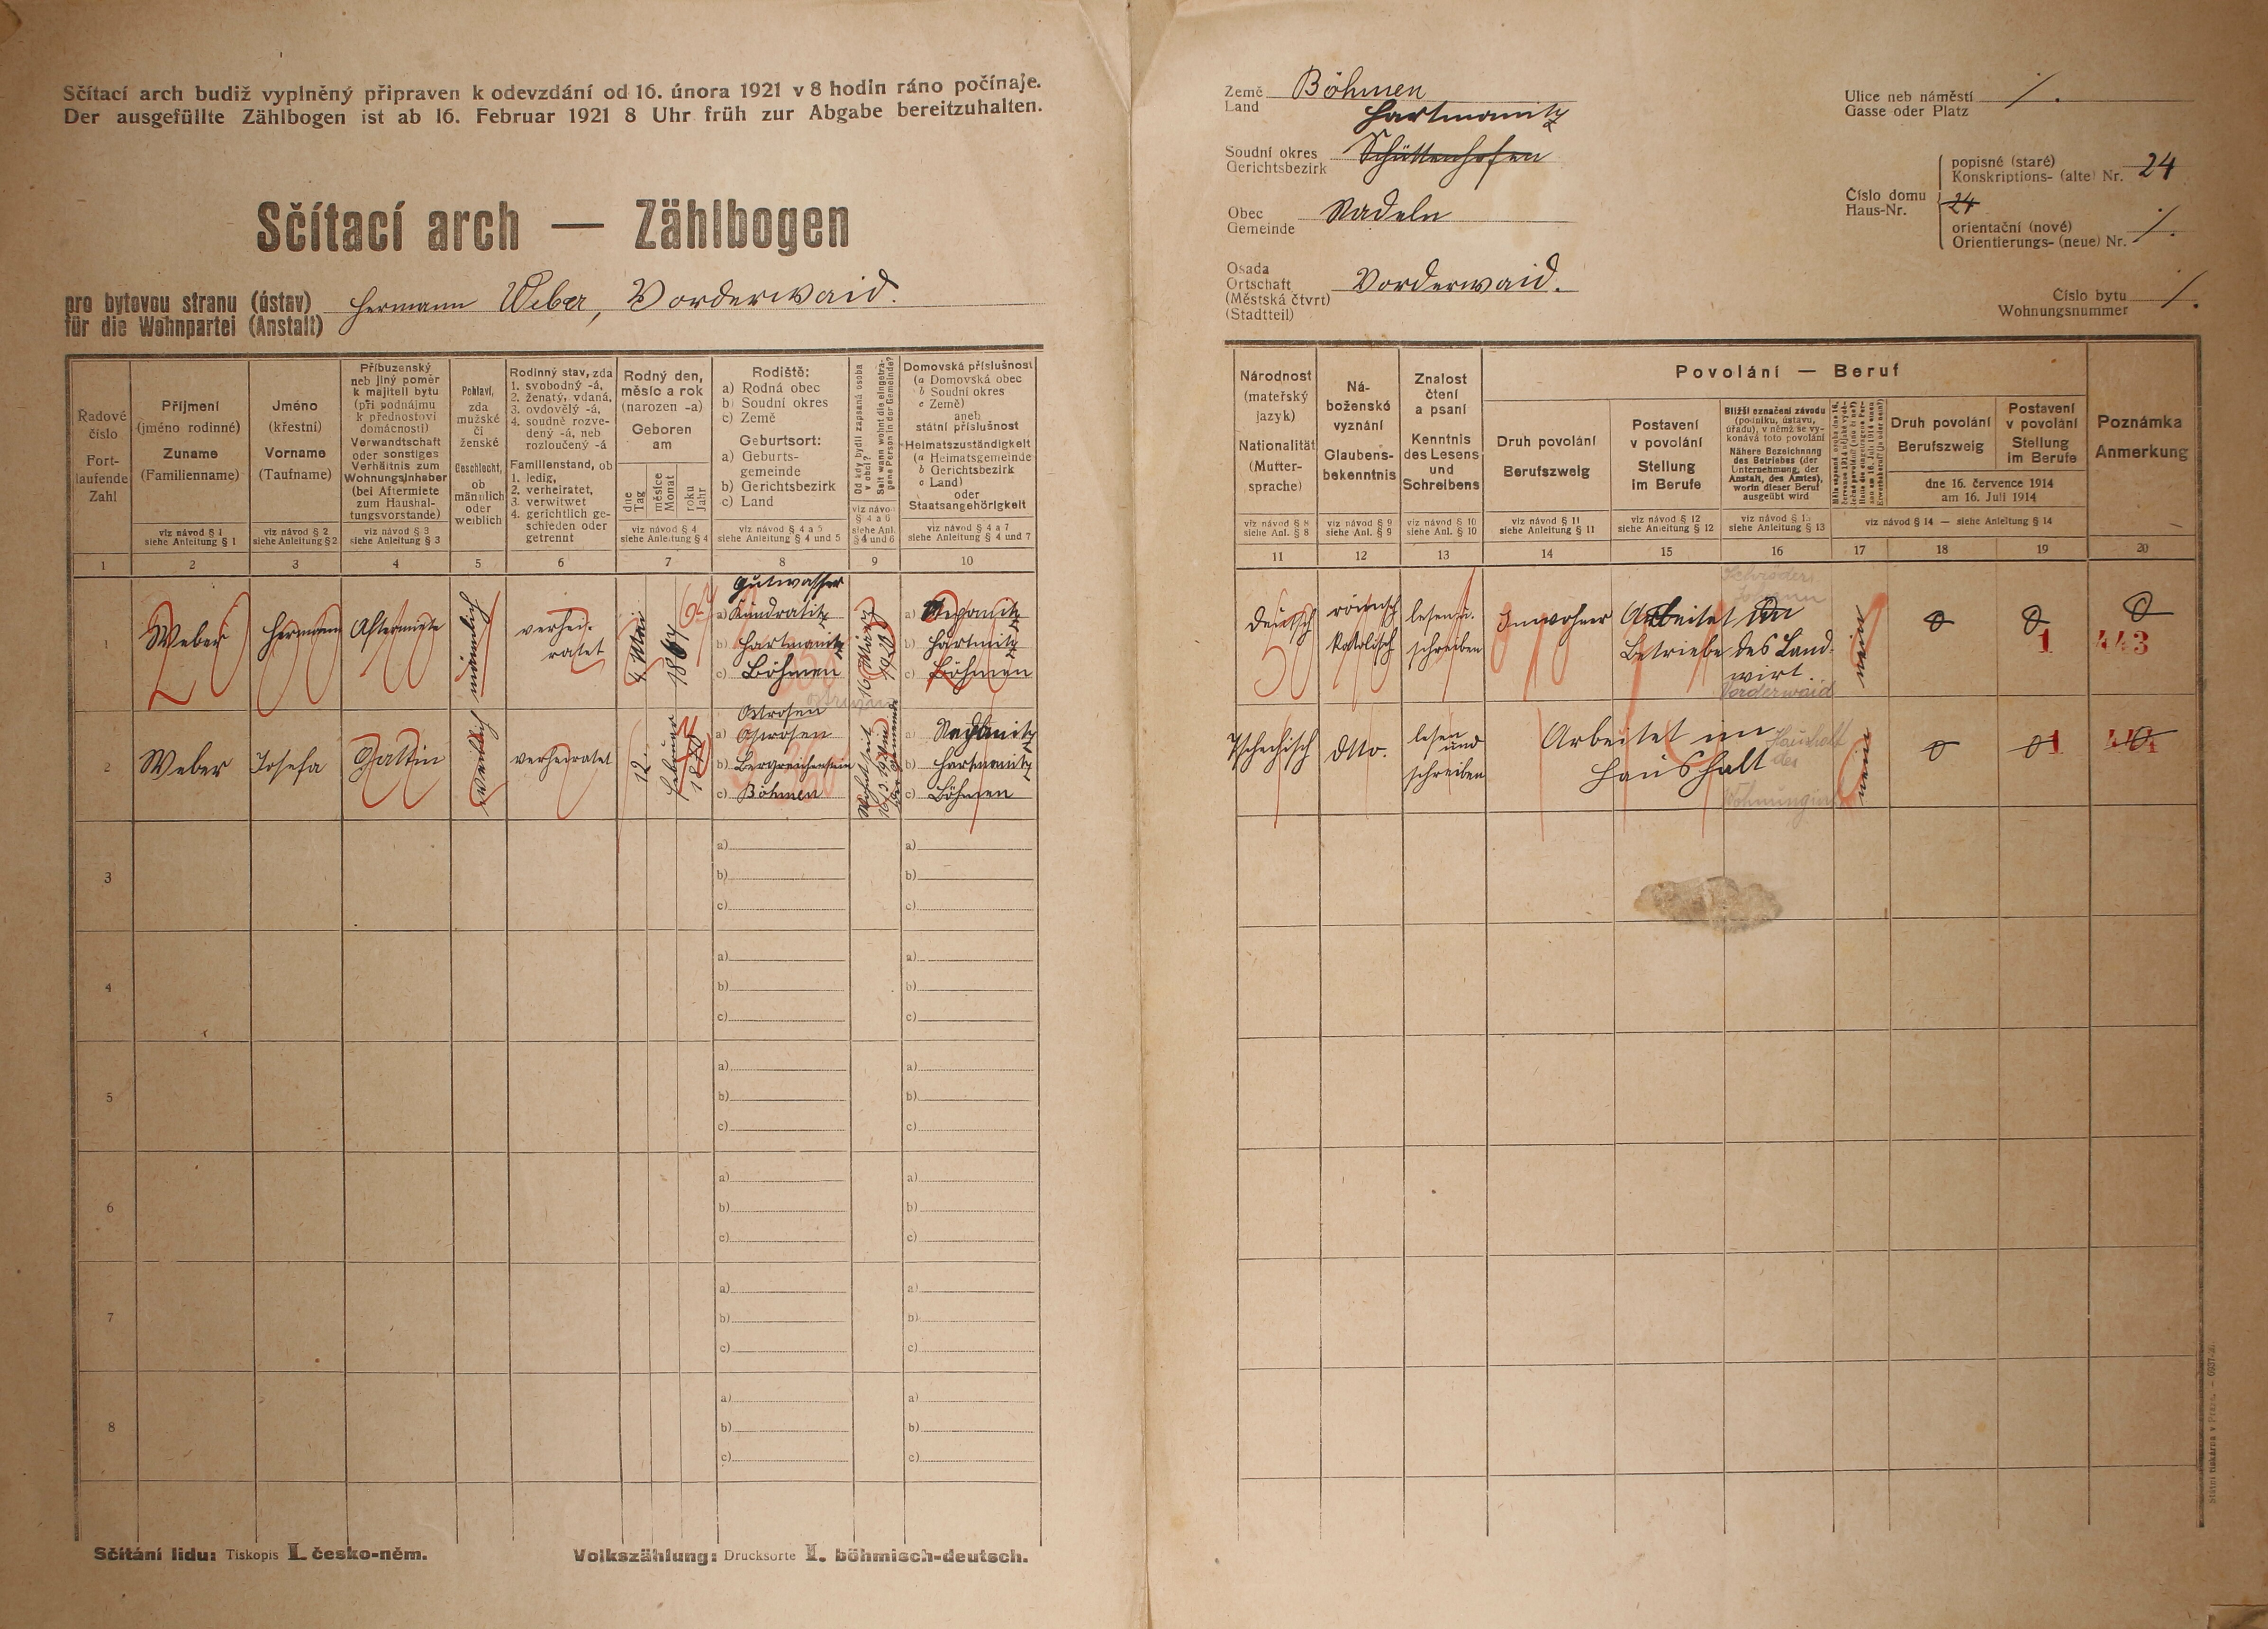 Sčítací arch budiž vyplněný připraven k odevzdání od 16. února 1921 v 8 hodin ráno počínaje.
Der ausgefüllte Zählbogen ist ab 16. Februar 1921 8 Uhr früh zur Abgabe bereitzuhalten.
Sčítací arch — Zählbogen
pro bytovou stranu (ústav)
für die Wohnpartei (Anstalt)
Hermann Weber, Vorderwaid.
Země
Land
Böhmen
Hartmanitz
Soudní okres
Gerichtsbezirk
Schüttenhofen
Obec
Gemeinde
Stadeln
Osada
Ortschaft
(Městská čtvrt)
(Stadtteil)
Vorderwaid.
Ulice neb náměstí
Gasse oder Platz
Číslo domu
Haus-Nr.
popisné (staré)
Konskriptions- (alte) Nr. 24
24
orientační (nové)
Orientierungs- (neue) Nr.
Číslo bytu
Wohnungsnummer
Řadové
číslo
Fort-
laufende
Zahl
1
Příjmení
(jméno rodinné)
Zuname
(Familienname)
viz návod § 1
siehe Anleitung § 1
2
Jméno
(křestní)
Vorname
(Taufname)
viz návod § 2
siehe Anleitung § 2
3
Příbuzenský
neb jiný poměr
k majiteli bytu
(při podnájmu
k přednostovi
domácnosti)
Verwandtschaft
oder sonstiges
Verhältnis zum
Wohnungsinhaber
(bei Aftermiete
zum Haushal-
tungsvorstande)
viz návod § 3
siehe Anleitung § 3
4
Pohlaví,
zda
mužské
či
ženské
Geschlecht,
ob
männlich
oder
weiblich
5
Rodinný stav, zda
1. svobodný -á,
2. ženatý, vdaná,
3. ovdovělý -á,
4. soudně rozve-
dený -á, neb
rozloučený -á
Familienstand, ob
1. ledig,
2. verheiratet,
3. verwitwet
4. gerichtlich ge-
schieden oder
getrennt
6
Rodný den,
měsíc a rok
(narozen -a)
Geboren
am
dne
Tag
měsíce
Monat
roku
Jahr
viz návod § 4
siehe Anleitung § 4
7
Rodiště:
a) Rodná obec
b) Soudní okres
c) Země
Geburtsort:
a) Geburts-
gemeinde
b) Gerichtsbezirk
c) Land
viz návod § 4 a 5
siehe Anleitung § 4 und 5
8
Od kdy bydlí zapsaná osoba
v obci?
Seit wann wohnt die eingetra-
gene Person in der Gemeinde?
viz návod
§ 4 a 6
siehe Anl.
§ 4 und 6
9
Domovská příslušnost
(a Domovská obec
b Soudní okres
c Země)
aneb
státní příslušnost
Heimatszuständigkeit
(a Heimatsgemeinde
b Gerichtsbezirk
c Land)
oder
Staatsangehörigkeit
viz návod § 4 a 7
siehe Anleitung § 4 und 7
10
Národnost
(mateřský
jazyk)
Nationalität
(Mutter-
sprache)
viz návod § 8
siehe Anl. § 8
11
Ná-
boženské
vyznání
Glaubens-
bekenntnis
viz návod § 9
siehe Anl. § 9
12
Znalost
čtení
a psaní
Kenntnis
des Lesens
und
Schreibens
viz návod § 10
siehe Anl. § 10
13
Povolání — Beruf
Druh povolání
Berufszweig
viz návod § 11
siehe Anleitung § 11
14
Postavení
v povolání
Stellung
im Berufe
viz návod § 12
siehe Anleitung § 12
15
Bližší označení závodu
(podniku, ústavu,
úřadu), v němž se vy-
konává toto povolání
Nähere Bezeichnung
des Betriebes (der
Unternehmung, der
Anstalt, des Amtes),
worin dieser Beruf
ausgeübt wird
viz návod § 13
siehe Anleitung § 13
16
17
Druh povolání
Berufszweig
18
Postavení
v povolání
Stellung
im Berufe
19
dne 16. července 1914
am 16. Juli 1914
viz návod § 14 — siehe Anleitung § 14
Poznámka
Anmerkung
20
1
Weber
Hermann
Aftermiete
männlich
verhei-
ratet
4
Mai
1864
Gutwasser
a) Kundratitz
b) Hartmanitz
c) Böhmen
16 März
1920
a)
b) Hartmitz
c) Böhmen
deutsch
römisch
katolisch
lesen u.
schreiben
Inwohner
Arbeitet im
Betriebe des Land-
wirt.
Vorderwaid
nein
0
0
1
0
443
2
Weber
Josefa
Gattin
weiblich
verheiratet
12
Februar
Ostrosen
a) Ostrosen
b) Bergreichenstein
c) Böhmen
a)
b) Hartmanitz
c) Böhmen
Tschechisch
dtto.
lesen
und
schreiben
Arbeitet im
Haushalt
Haushalt
des
nein
0
0 1
3
a)
b)
c)
a)
b)
c)
4
a)
b)
c)
a)
b)
c)
5
a)
b)
c)
a)
b)
c)
6
a)
b)
c)
a)
b)
c)
7
a)
b)
c)
a)
b)
c)
8
a)
b)
c)
a)
b)
c)
Sčítání lidu: Tiskopis I. česko-něm.
Volkszählung: Drucksorte I. böhmisch-deutsch.